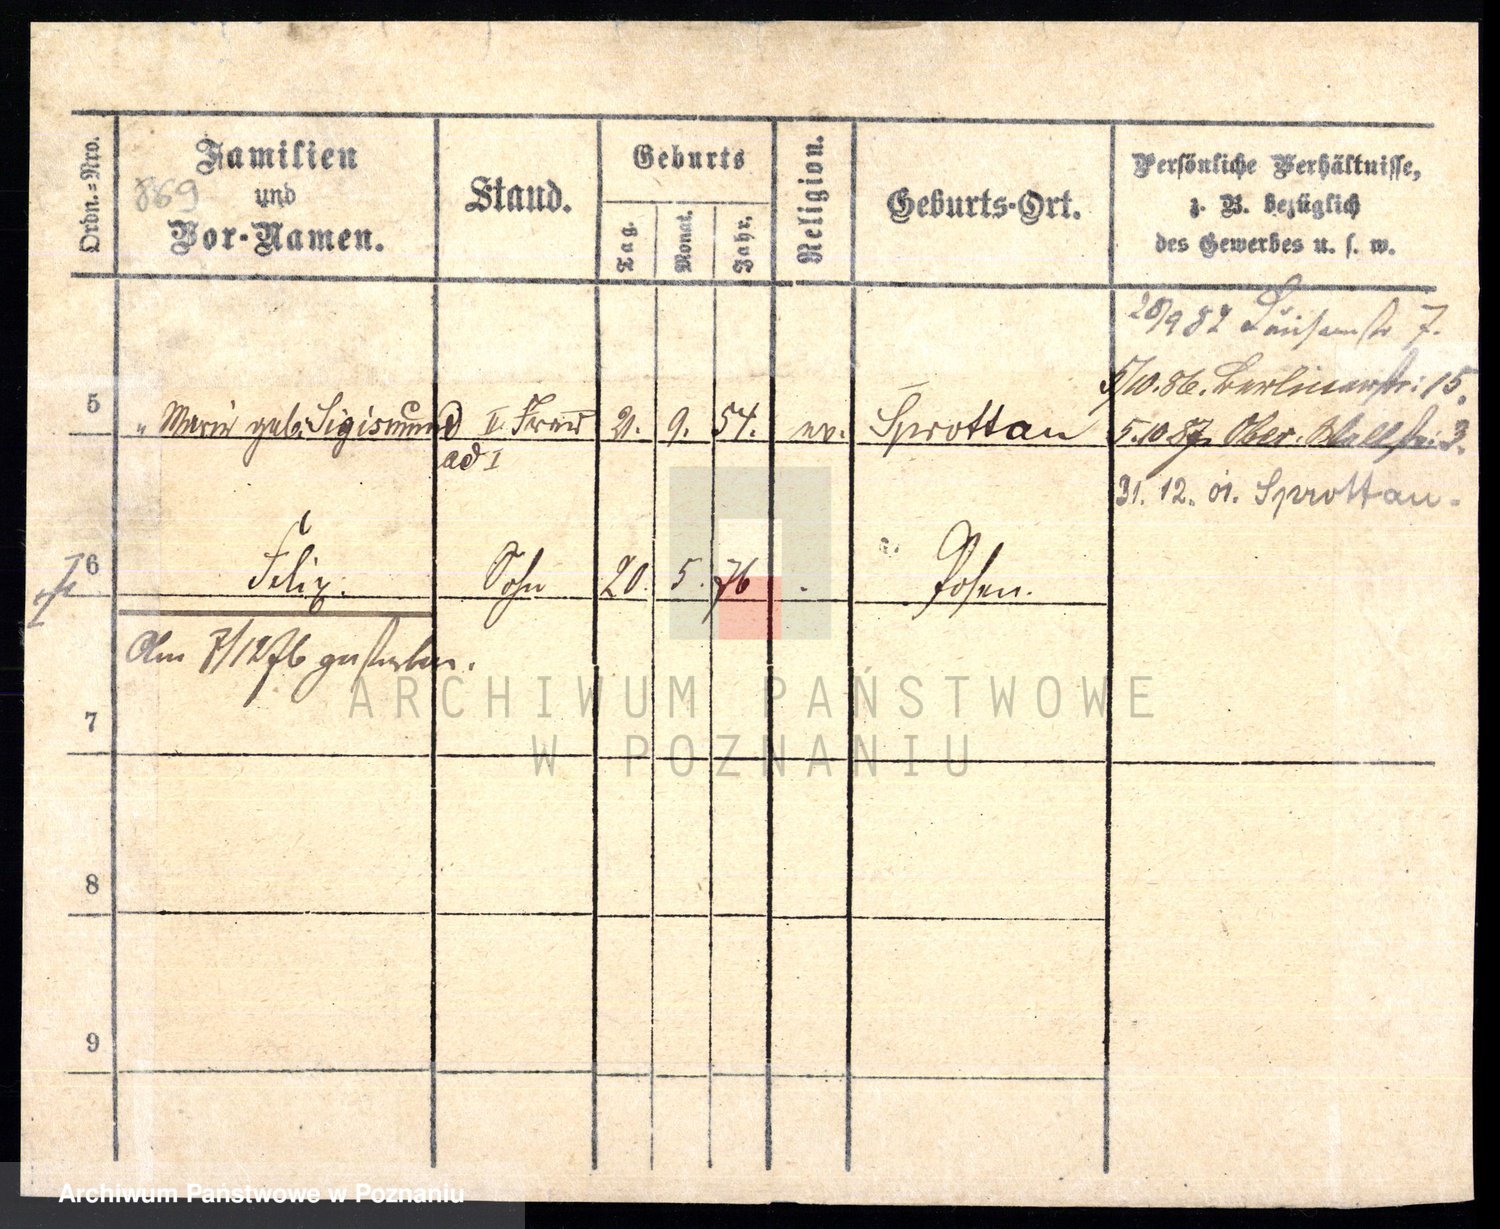 Ordn.=Nro.
Familien
und
Vor-Namen.
869
Stand.
Geburts
Tag.
Monat.
Jahr.
Religion.
Geburts-Ort.
Persönliche Verhältnisse,
z. B. bezüglich
des Gewerbes u. s. w.
20/9 82 Louisenstr 7.
5/10.86. Berlinerstr: 15.
5 „ Marie geb. Sigismund II. Frau 21. 9. 54. ev. Sprottau 5.10 87. Ober. Wallstr: 3.
ad I
31. 12. 01. Sprottau.
6 Felix. Sohn 20. 5. 76 Posen.
Am 7/12 76 gestorben.
7
8
9
ARCHIWUM PAŃSTWOWE
W POZNANIU
Archiwum Państwowe w Poznaniu